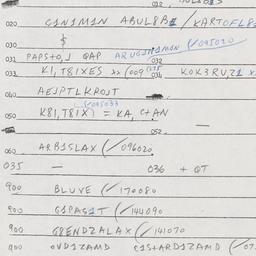 012
020 G1N1M1N ABUL8B1 / KARTOFL8
030 $
031 PAPS+0,J QAP ARUG1N1M1N (✓095020 032
033 K1,T81XES 034 K0K3RU,Z1
040 AEJPTLKPOJT
(✓095033
050 K81,T81X) = KA, C+AN —
052
060 ARB15LAX (✓096020
035 — 036 + QT
900 BLUVE (✓170080
900 G1PAG1T (✓144090
900 G8ENDZALAX (✓141070
900 OVD1ZAMD C1S+ARD1ZAMD (✓07